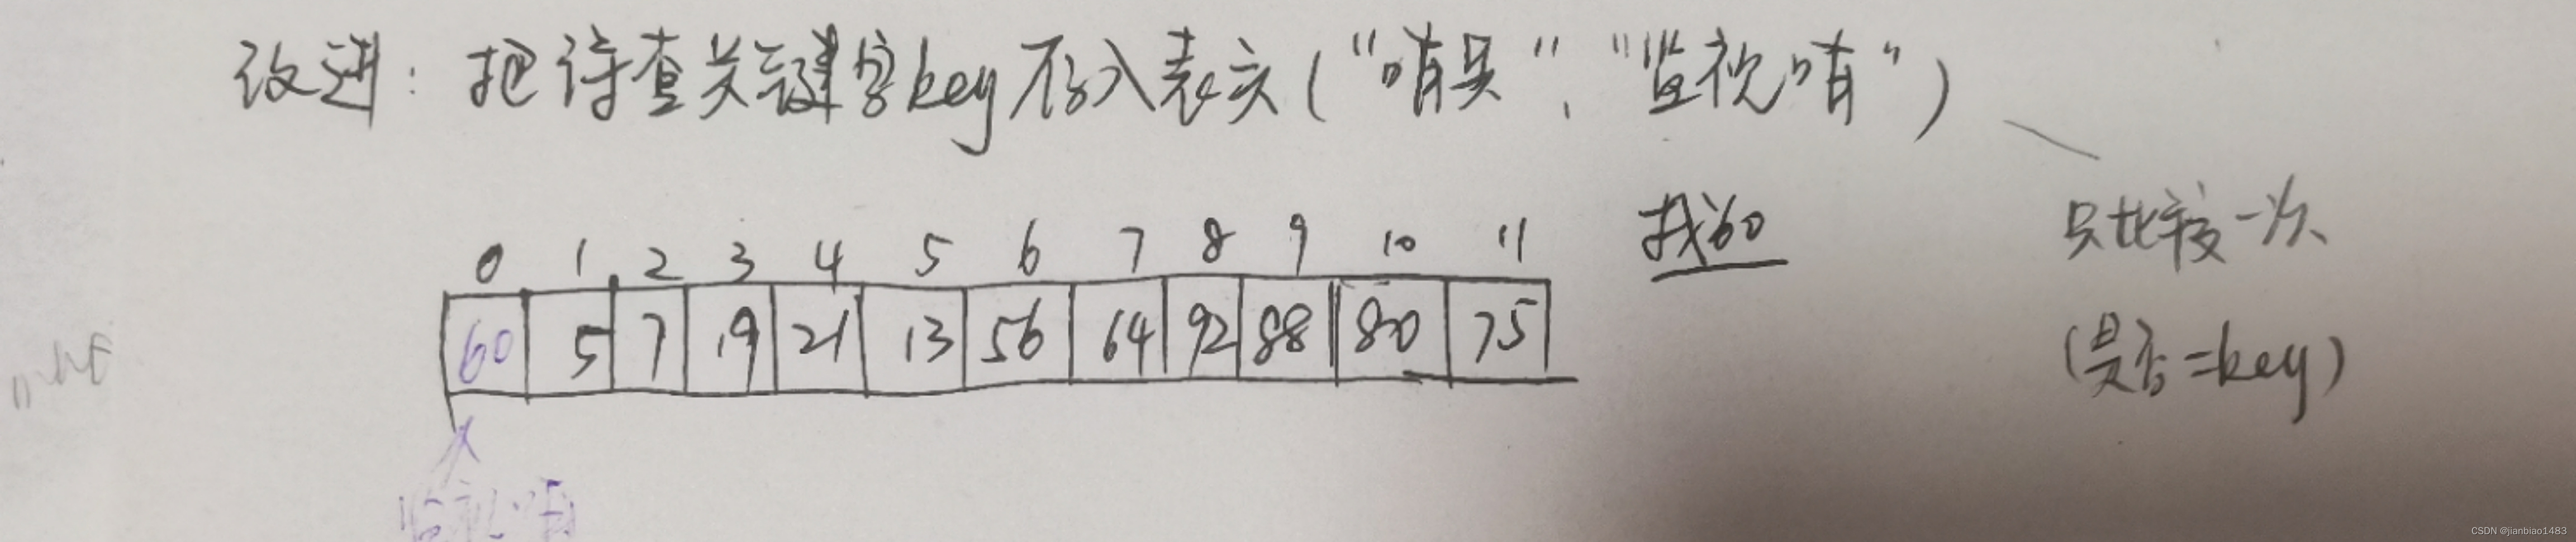 改进：把待查关键字key存入表头（“哨兵”、“监视哨”）
找60
只比较一次
0 1 2 3 4 5 6 7 8 9 10 11
60 5 7 19 21 13 56 64 92 88 80 75
（是否=key）
监视哨
CSDN @jianbiao1483